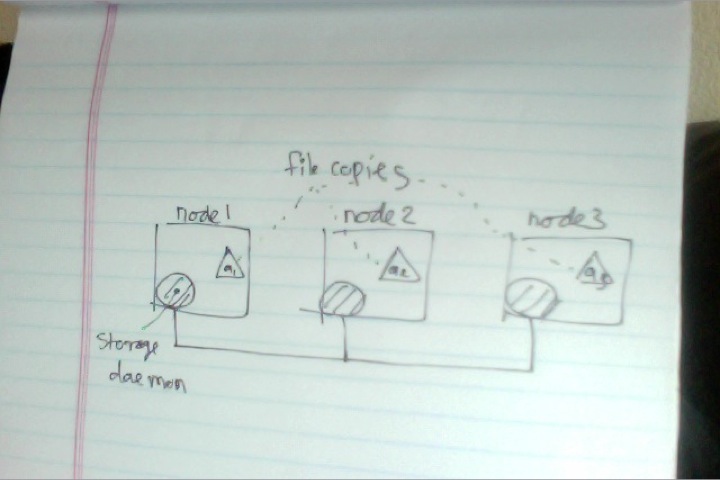 file copies
node1 node2 node3
a1 a2
storage
daemon